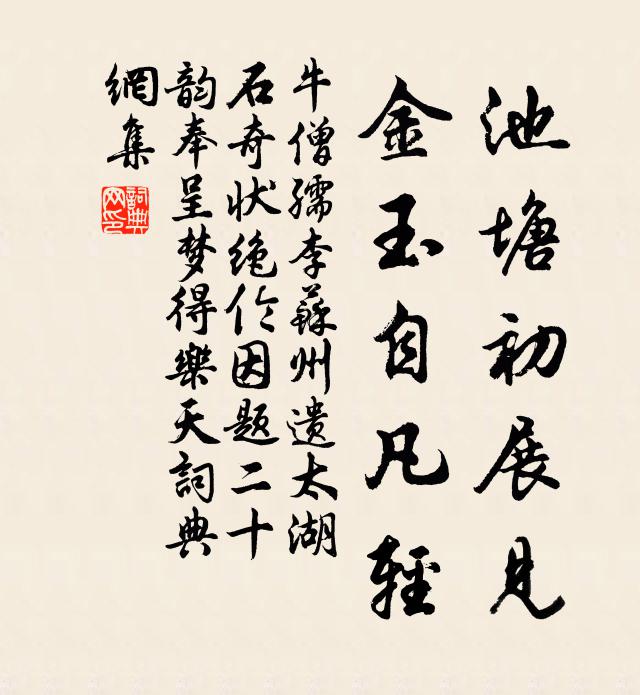 池塘初展見
金玉自凡輕
牛僧孺李蘇州遺太湖
石奇状絶伦因题二十
韵奉呈梦得樂天詞典
網集
詞典
网印